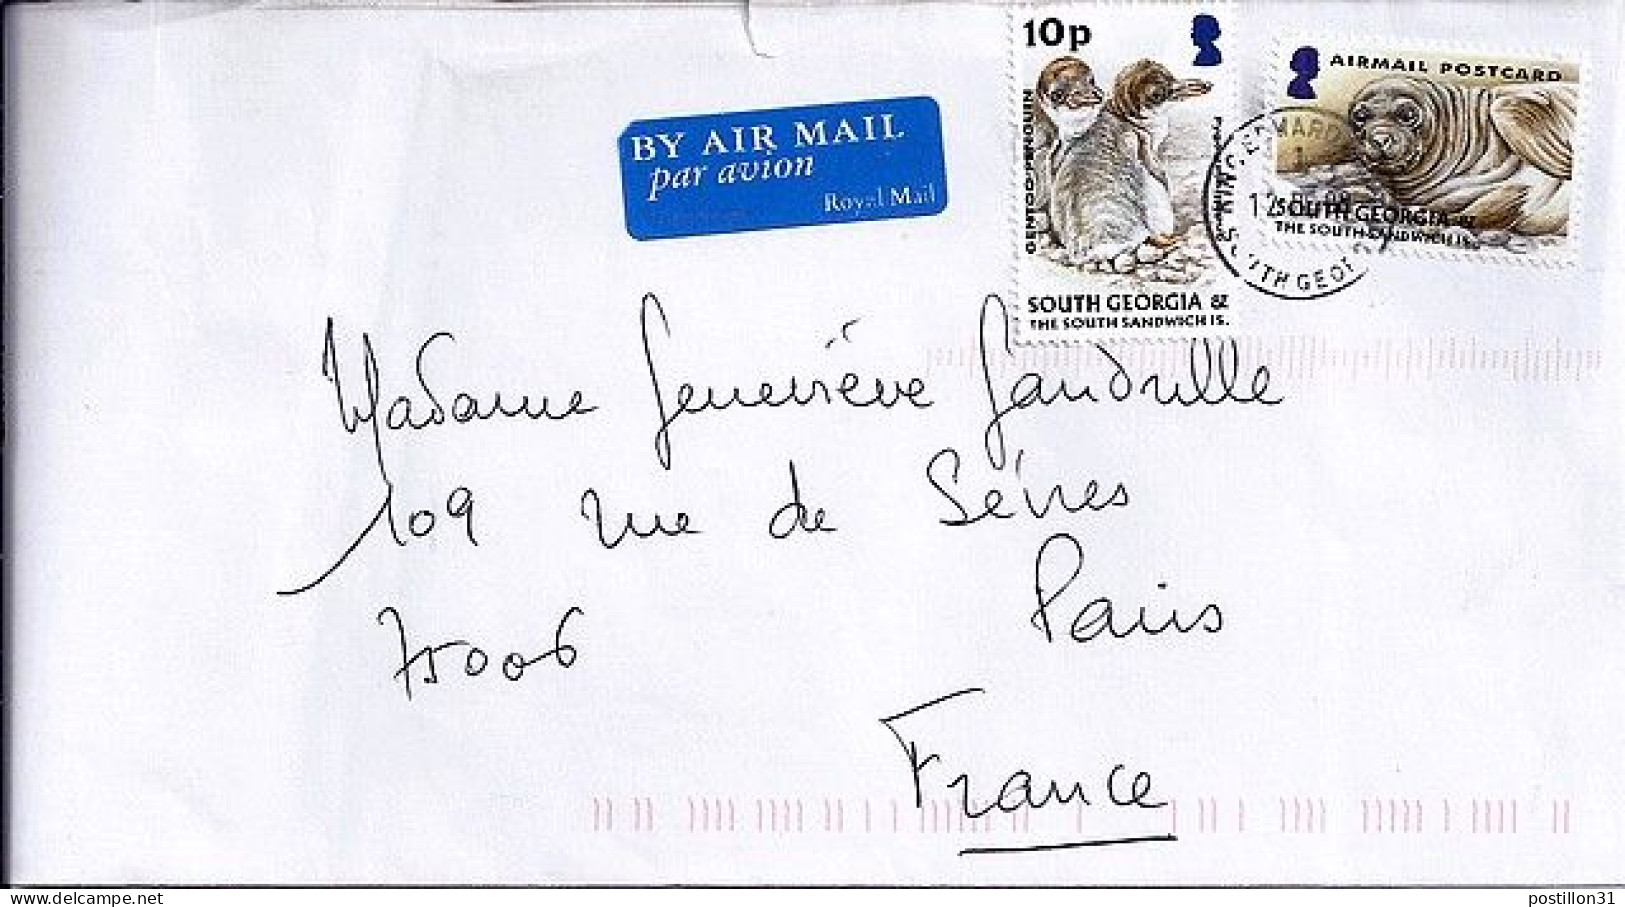 BY AIR MAIL
par avion
Royal Mail
10p
GENTOO PENGUIN
SOUTH GEORGIA &
THE SOUTH SANDWICH IS.
AIRMAIL POSTCARD
SOUTH GEORGIA &
THE SOUTH SANDWICH IS.
Madame Geneviève Gandrille
109 rue de Sèvres
75006 Paris
France
postillon31